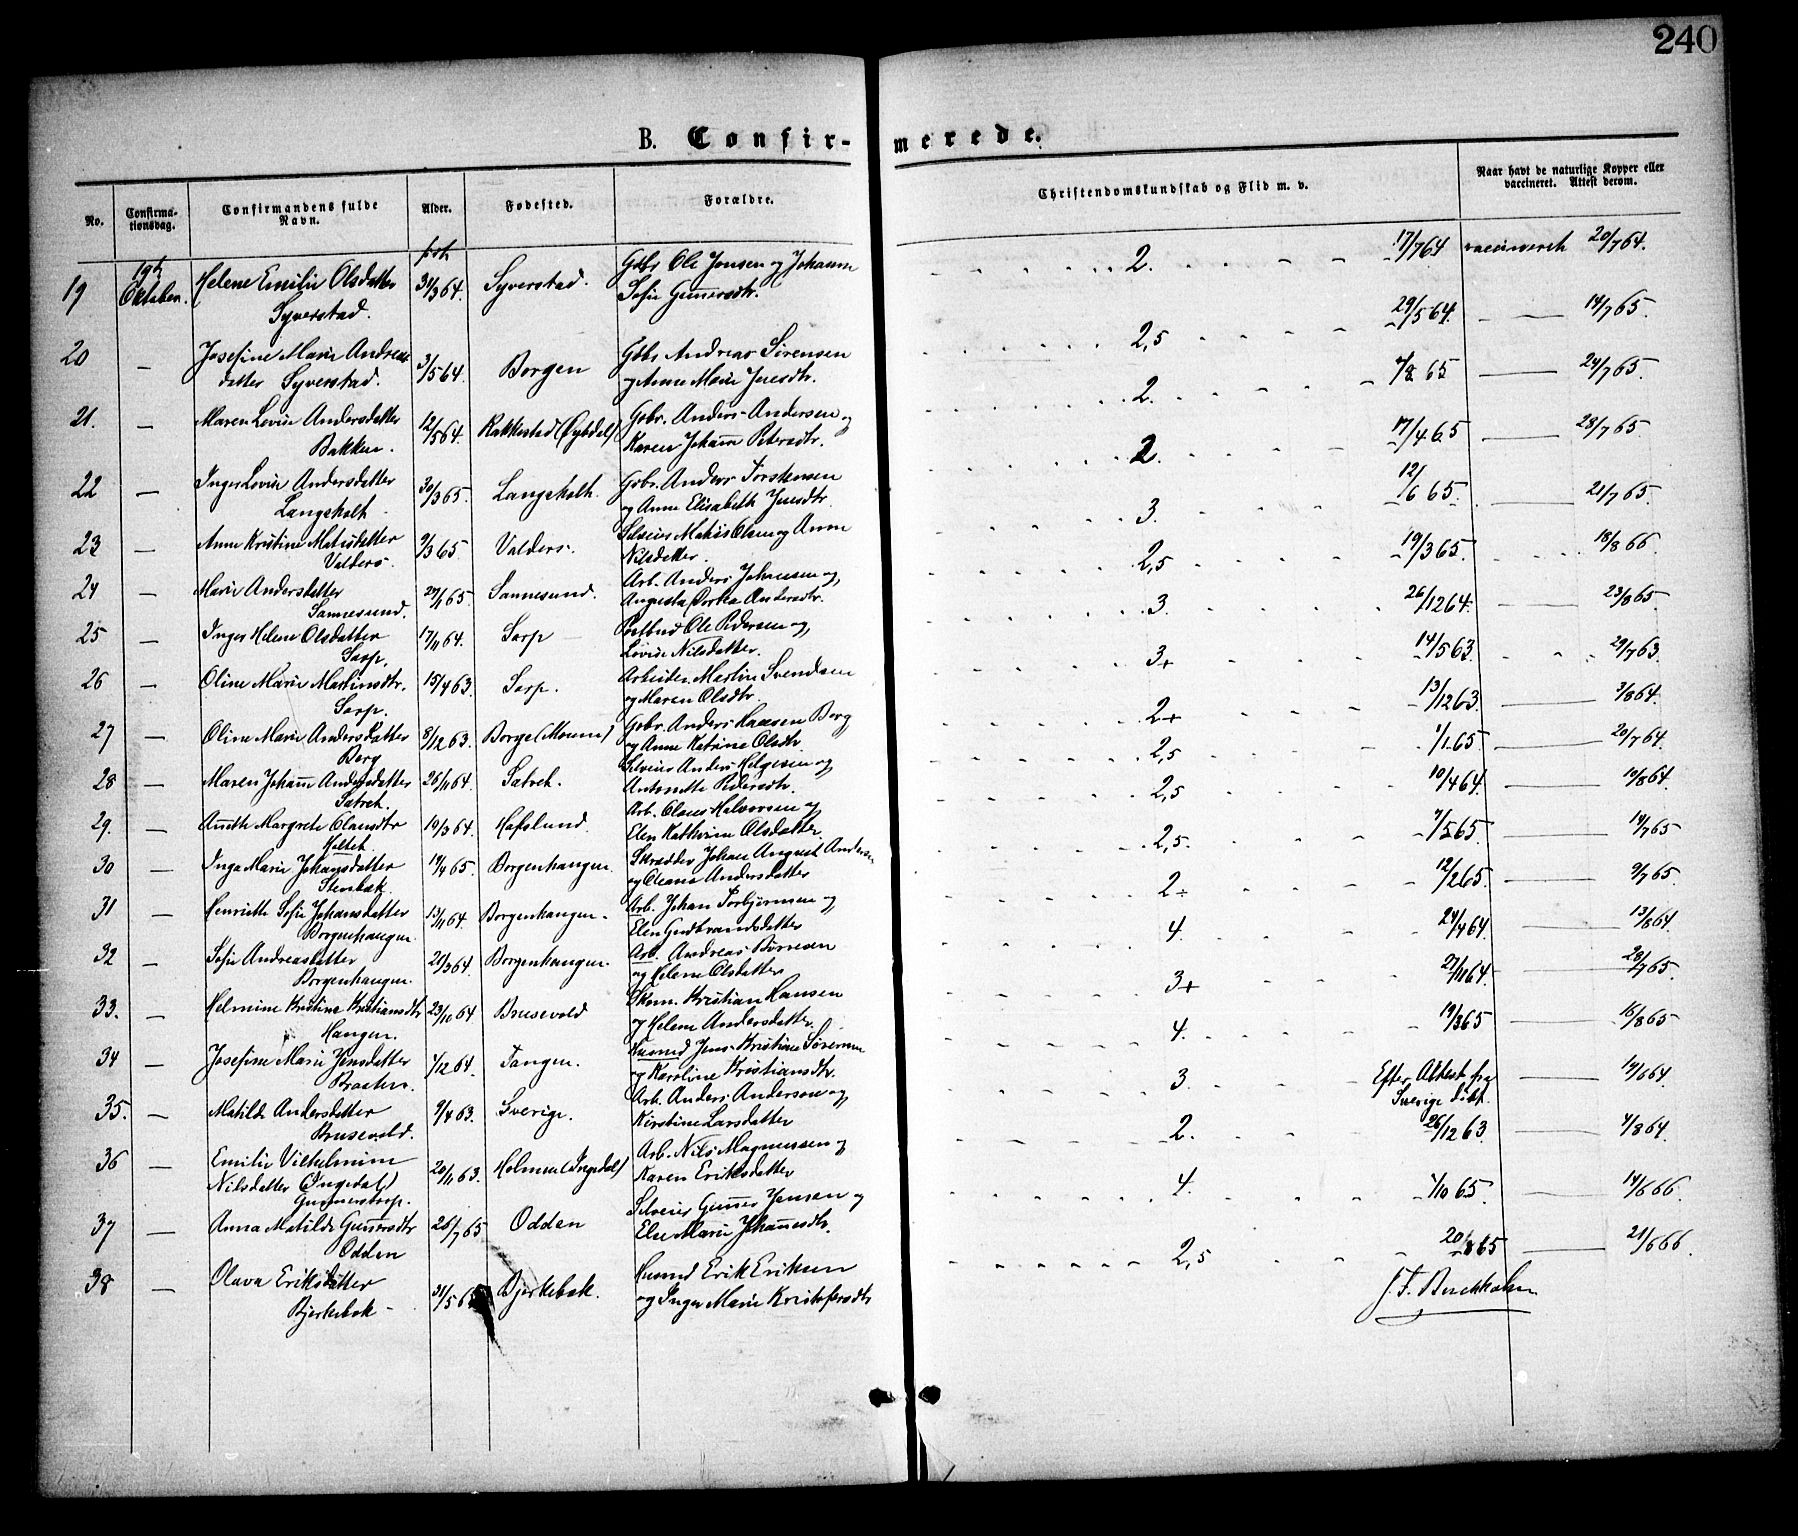 240
B. Confir-merede.
No.
Confirma-
tionsdag.
Confirmandens fulde
Navn.
Alder.
Fødested.
Forældre.
Christendomskundskab og Flid m. v.
Naar havt de naturlige Kopper eller
vaccineret. Attest derom.
19 Oktober. Helene Emilie Olsdatter 31/3 64. Syverstad. Gbbr. Ole Jensen og Johanne 2. 17/7 64 vaccineret 20/7 64.
Syverstad. Sofie Gunersdtr.
20 — Josefine Marie Andreas 3/5 64. Borgen Gbbr. Andreas Sørensen 2,5 29/5 64. — 14/7 65.
datter Syverstad. og Anne Marie Jensdtr.
21. — Maren Lovise Andersdatter 12/5 64. Rakkestad Gbbr. Anders Andersen og 2. 65 — 24/7 65.
Bakken. Karen Johanne Petersdtr.
22 — Inger Lovise Andersdatter 30/3 65. Langeholt. Gbbr. Anders Torstensen 2. 17/4 65 — 28/7 65.
Langeholt. og Anne Elisabeth Jensdtr.
23 — Anne Kristine Matisdatter 9/3 65 Valders. Selveier Matis Olsen og Anne 3. 12/6 65. — 21/7 65.
Valders. Nilsdatter.
24 — Marie Andersdatter 65. Sannesund. Arb. Anders Johansen og 2,5 19/3 65. 18/8 66.
Sannesund. Augusta Dortea Andersdtr.
25 — Inger Helene Olsdatter 17/11 64. Sarp — Postbud Ole Pedersen og 3. 26/12 64. — 23/8 65.
Sarp. Lovise Nilsdatter.
26 — Oline Marie Martinsdtr. 15/4 63. Sarp. Arbeider Martin Svendsen 3+ 14/5 63. 29/7 63.
Sarp. og Maren Olsdtr.
27 — Oline Marie Andersdatter 8/12 63. Borge (Moum) Gbbr. Anders Hansen Berg 2+ 13/12 63. — 3/8 64.
Berg og Anne Katrine Olsdtr.
28 — Maren Johanne Andersdatter 26/11 64. Satret. Selveier Anders Helgesen og 2,5 1/1 65. — 20/7 64.
Satret. Antonette Pedersdtr.
29. — Anette Margrete Olausdtr 19/3 64. Hafslund. Arb. Olaus Halvorsen og 2,5 10/4 64. — 10/8 64.
Elen Kathrine Olsdatter
30 — Inga Marie Johansdatter 14/4 65. Borgenhaugen. Skrædder Johan August Andersen 2,5. 7/5 65. — 14/7 65
Stenbæk. og Oleana Andersdatter
31 — Henriette Sofie Johansdatter 13/11 64. Borgenhaugen. Arb. Johan Torbjørnsen og 2÷ 12/2 65. — 9/7 65.
Borgenhaugen Elen Gudbrandsdatter
32 — Sofie Andreasdatter 20/3 64. Borgenhaugen. Arb. Andreas Børresen 4. 24/4 64. — 13/8 64.
Borgenhaugen. og Helene Olsdatter
33. — Helmine Kristine Kristiansdtr 23/10 64 Brusevold Skom. Kristian Hansen 3+ 27/11 64. — 28/7 65.
Haugen. og Helene Andersdatter.
34 — Josefine Marie Jensdatter 1/12 64. Tangen. Husmd Jens Kristian Sørensen 4. 19/3 65 — 16/8 65
Braaten. og Karoline Kristiansdtr.
35. — Matilde Andersdatter 9/4 63. Sverige. Arb. Anders Andersen og 3 Efter Attest fra — 14/6 64.
Brusevold. Kirstine Larsdatter Sverige døbt.
36 — Emilie Vilhelmine 20/11 63. Holmen (Ingedal) Arb. Nils Magnussen og 2. 26/12 63. — 4/8 64.
Nilsdatter (Ingedal) Karen Eriksdatter
Gunnerstorp.
37 — Anna Matilde Gunersdtr 26/7 65 Odden Selveier Guner Jensen og 4. 1/10 65. — 14/6 66.
Odden Else Marie Johannesdtr.
38 — Olava Eriksdatter 31/5 65 Bjerkebæk. Husmd Erik Eriksen 2,5 65 — 21/6 66.
Bjerkebæk og Inger Marie Kristofersdtr
J. F. Buchholm